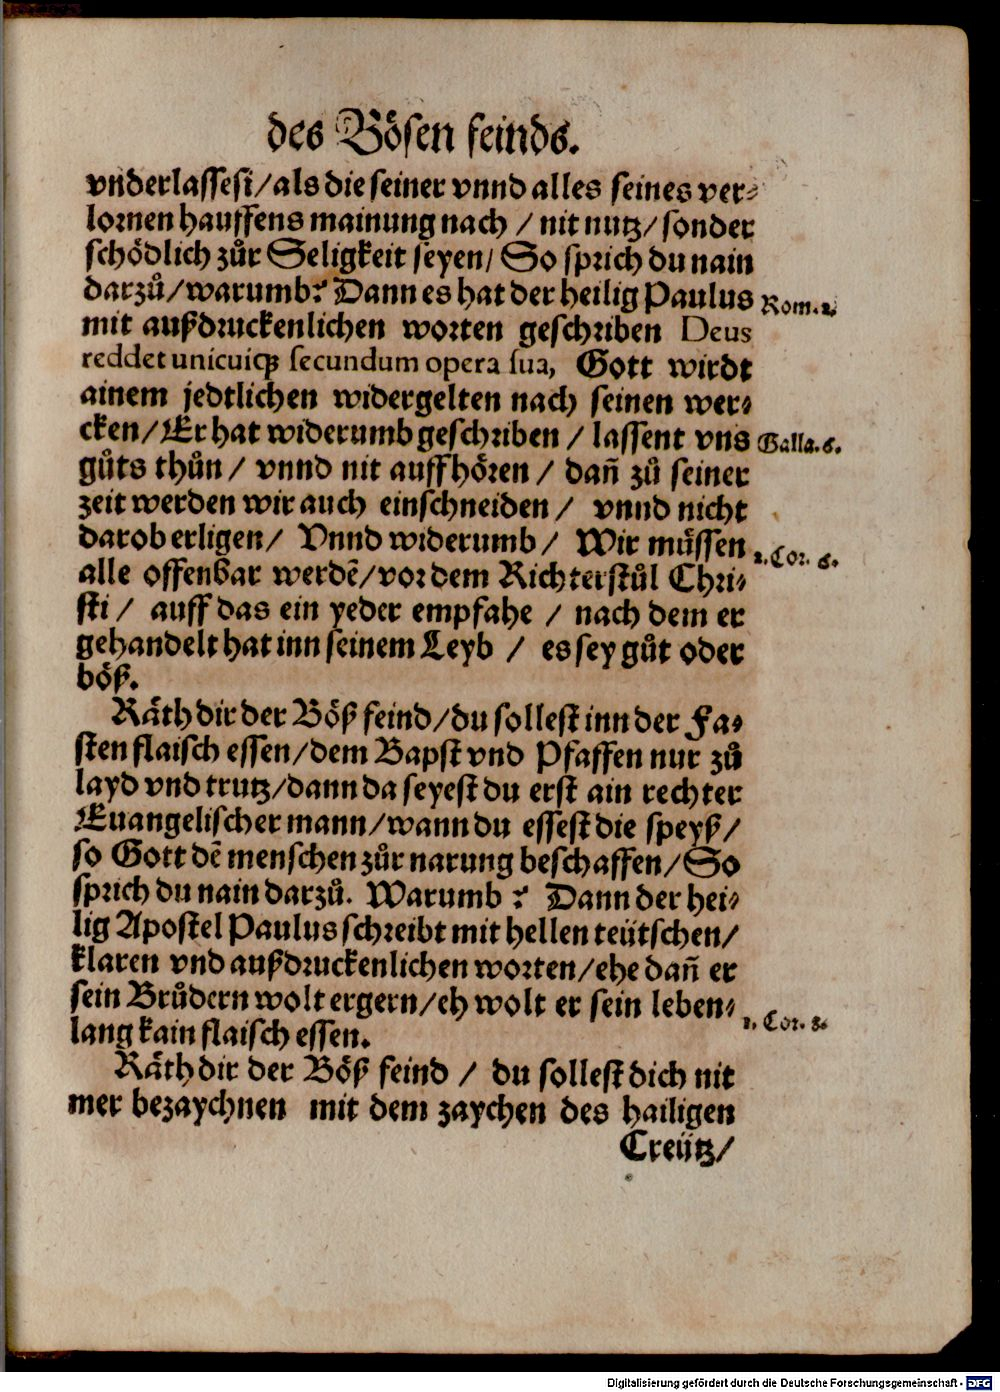 des Bösen feinds.
vnderlassest/als die seiner vnnd alles seines ver⸗
lornen hauffens mainung nach / nit nutz/ sonder
schödlich zůr Seligkeit seyen/ So sprich du nain
darzů/warumb? Dann es hat der heilig Paulus
Rom. 2.
mit außdruckenlichen worten geschriben Deus
reddet unicuiq́ꝫ secundum opera sua, Gott wirdt
ainem jedtlichen widergelten nach seinen wer⸗
cken/Er hat widerumb geschriben / lassent vns
Galla. 6.
gůts thůn / vnnd nit auffhören / dañ zů seiner
zeit werden wir auch einschneiden / vnnd nicht
darob erligen/ Vnnd widerumb/ Wir müssen
2. Cor. 6.
alle offenbar werdẽ/vor dem Richterstůl Chri⸗
sti / auff das ein yeder empfahe / nach dem er
gehandelt hat inn seinem Leyb / es sey gůt oder
böß.
Räth dir der Böß feind/du sollest inn der Fa⸗
sten flaisch essen/dem Bapst vnd Pfaffen nur zů
layd vnd trutz/dann da seyest du erst ain rechter
Euangelischer mann/wann du essest die speyß/
so Gott dẽ menschen zůr narung beschaffen/So
sprich du nain darzů. Warumb ? Dann der hei⸗
lig Apostel Paulus schreibt mit hellen teütschen/
klaren vnd außdruckenlichen worten/ehe dañ er
sein Brůdern wolt ergern/eh wolt er sein leben⸗
1. Cor. 8.
lang kain flaisch essen.
Räth dir der Böß feind / du sollest dich nit
mer bezaychnen mit dem zaychen des hailigen
Creütz/
Digitalisierung gefördert durch die Deutsche Forschungsgemeinschaft - DFG